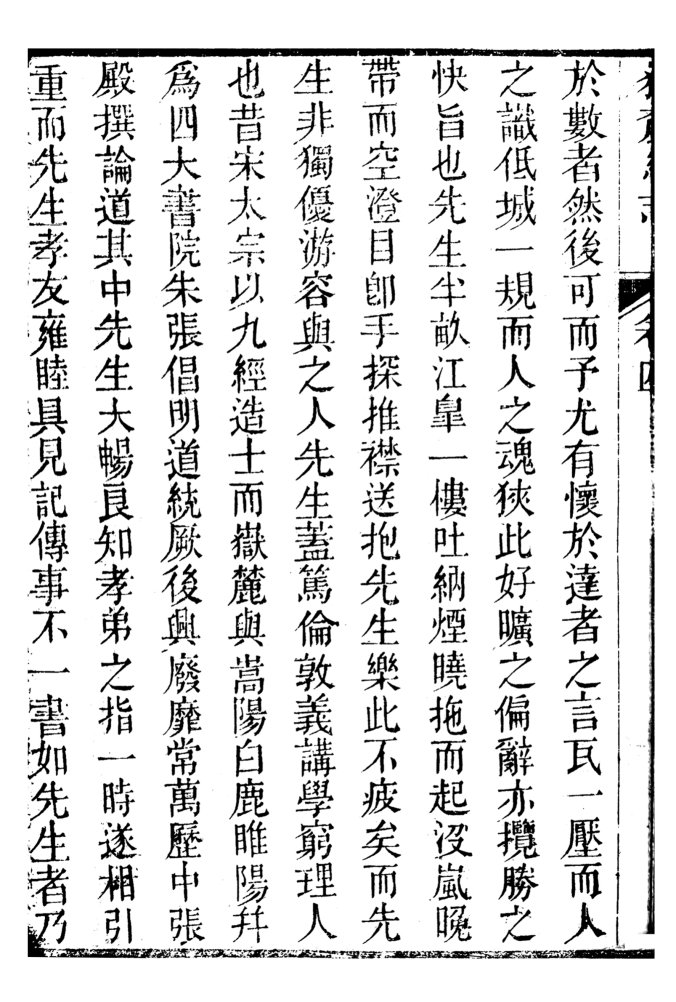 於數者然後可而予尤有懷於達者之言瓦一壓而人
之識低城一規而人之魂狹此好曠之偏辭亦攬勝之
快旨也先生半畝江臯一樓吐納煙曉拖而起沒嵐晚
帶而空澄目卽手探推襟送抱先生樂此不疲矣而先
生非獨優游容與之人先生蓋篤倫敦義講學窮理人
也昔宋太宗以九經造士而嶽麓與嵩陽白鹿睢陽幷
爲四大書院朱張倡明道統厥後興廢靡常萬歷中張
殿撰論道其中先生大暢良知孝弟之指一時遂相引
重而先生孝友雍睦具見記傳事不一書如先生者乃